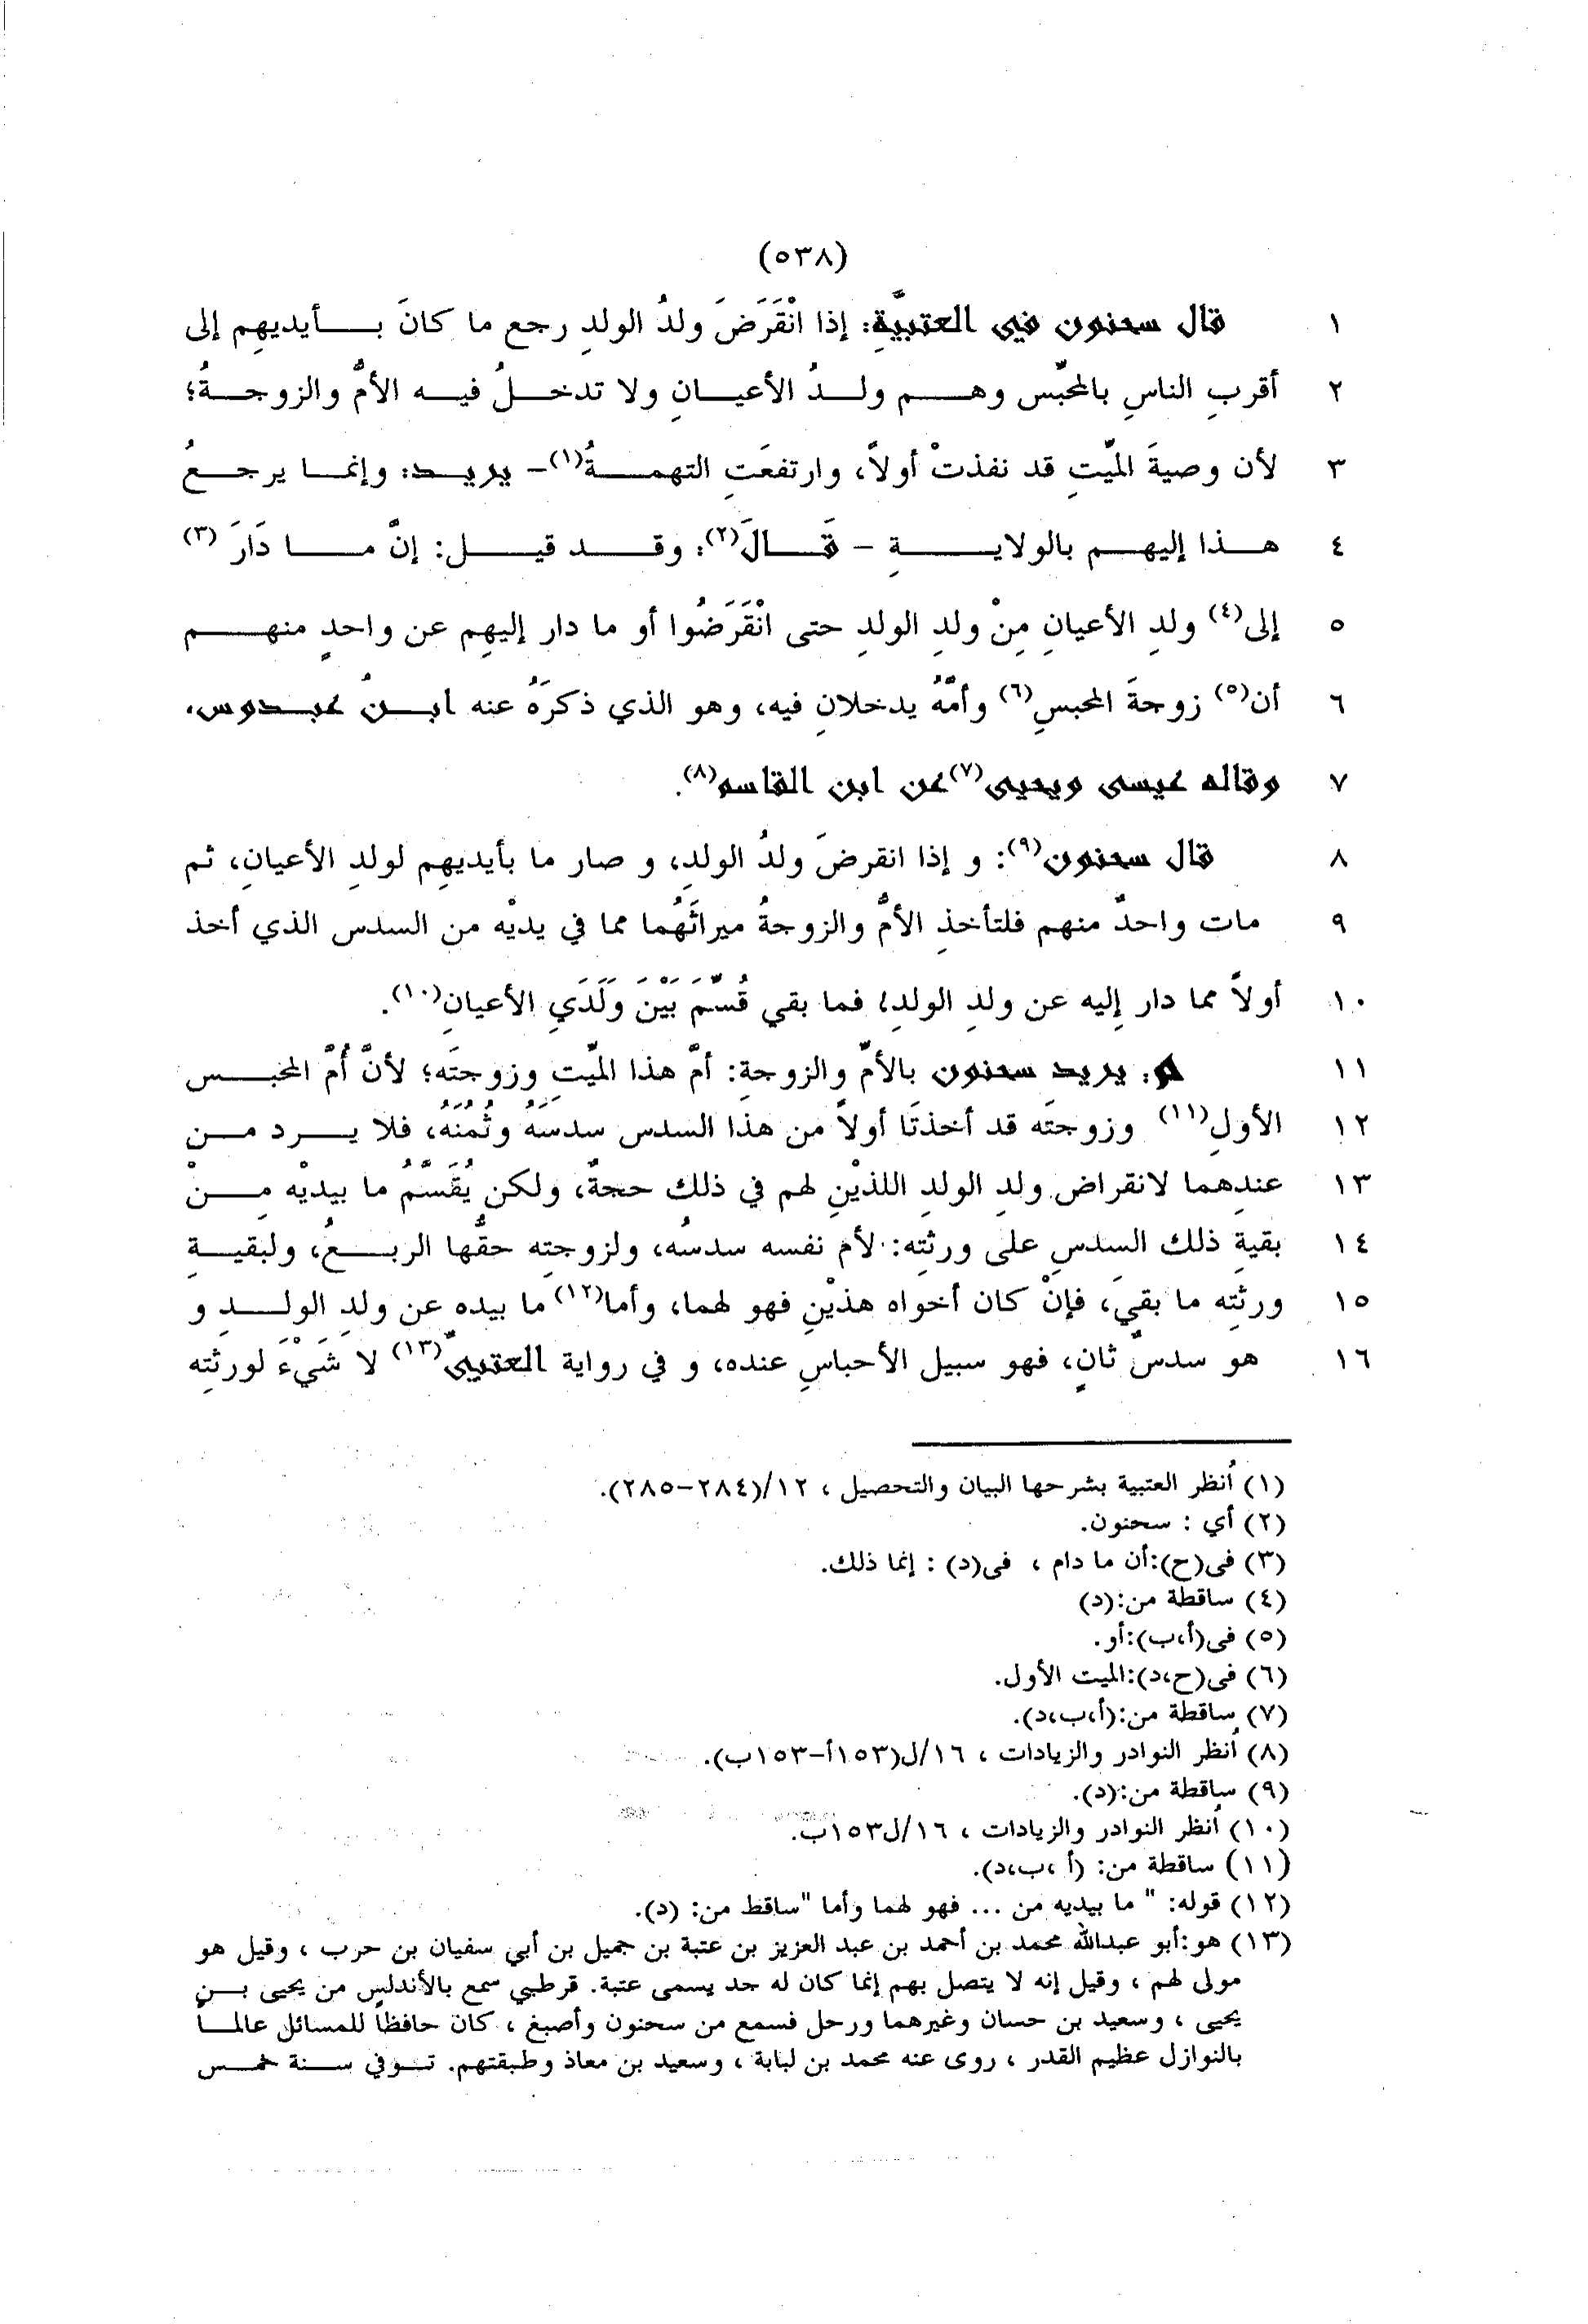 (٥٣٨)
١ قال سحنون في العتبيَّةِ: إذا انْقَرَضَ ولدُ الولدِ رجع ما كانَ بـأيديهِم إلى
٢ أقربِ الناسِ بالمحَّبس وهـم ولـدُ الأعيـانِ ولا تدخـلُ فيـه الأمُّ والزوجـةُ؛
٣ لأن وصيةَ الميّتِ قد نفذتْ أولاً، وارتفعَتِ التهمـةُ(١)– يريـد: وإنمـا يرجـعُ
٤ هـذا إليهـم بالولايـةِ – قَـالَ(٢): وقـد قيـل: إنَّ مـا دَارَ (٣)
٥ إلى(٤) ولدِ الأعيانِ مِنْ ولدِ الولدِ حتى انْقَرَضُوا أو ما دار إليهِم عن واحدٍ منهـم
٦ أن(٥) زوجةَ المحبسِ(٦) وأمَّهُ يدخلانِ فيه، وهو الذي ذكرَهُ عنه ابـنُ عبـدوس،
٧ وقاله عيسى ويحيى(٧)عن ابن القاسم(٨).
٨ قال سحنون(٩): و إذا انقرضَ ولدُ الولدِ، و صار ما بأيديهِم لولدِ الأعيانِ، ثم
٩ مات واحدٌ منهم فلتأخذِ الأمُّ والزوجةُ ميراثَهُما مما في يديْه من السدس الذي أخذ
١٠ أولاً مما دار إليه عن ولدِ الولدِ؛ فما بقي قُسِّمَ بَيْنَ وَلَدَيِ الأعيانِ(١٠).
١١ م: يريد سحنون بالأمِّ والزوجةِ: أمَّ هذا الميّتِ وزوجتَه؛ لأنَّ أُمَّ المحبـس
١٢ الأولِ(١١) وزوجتَه قد أخذتَا أولاً من هذا السدس سدسَهُ وثُمُنَهُ، فلا يـرد مـن
١٣ عندِهما لانقراض ولدِ الولدِ اللذيْنِ لهم في ذلك حجةٌ، ولكن يُقَسَّمُ ما بيديْه مِـنْ
١٤ بقيةِ ذلك السدسِ على ورثتِه: لأم نفسه سدسُه، ولزوجتِه حقُّها الربـعُ، ولبقيـةِ
١٥ ورثتِه ما بقيَ، فإنْ كان أخواه هذيْنِ فهو لهما، وأما(١٢) ما بيده عن ولدِ الولـدِ و
١٦ هو سدسٌ ثانٍ، فهو سبيل الأحباسِ عنده، و في رواية العتبيِّ(١٣) لا شَيْءَ لورثتِه
(١) اُنظر العتبية بشرحها البيان والتحصيل ، ١٢/(٢٨٤–٢٨٥).
(٢) أي : سحنون.
(٣) في(ح):أن ما دام ، في(د) : إنما ذلك.
(٤) ساقطة من:(د)
(٥) في(أ،ب):أو.
(٦) في(ح،د):الميت الأول.
(٧) ساقطة من:(أ،ب،د).
(٨) اُنظر النوادر والزيادات ، ١٦/ل(١٥٣أ–١٥٣ب).
(٩) ساقطة من:(د).
(١٠) اُنظر النوادر والزيادات ، ١٦/ل١٥٣ب.
(١١) ساقطة من: (أ ،ب،د).
(١٢) قوله: " ما بيديه من ... فهو لهما وأما "ساقط من: (د).
(١٣) هو:أبو عبدالله محمد بن أحمد بن عبد العزيز بن عتبة بن جميل بن أبي سفيان بن حرب ، وقيل هو
مولى لهم ، وقيل إنه لا يتصل بهم إنما كان له جد يسمى عتبة. قرطبي سمع بالأندلس من يحيى بـن
يحيى ، وسعيد بن حسان وغيرهما ورحل فسمع من سحنون وأصبغ ، كان حافظاً للمسائل عالمـاً
بالنوازل عظيم القدر ، روى عنه محمد بن لبابة ، وسعيد بن معاذ وطبقتهم. تـوفي سـنة خمـس